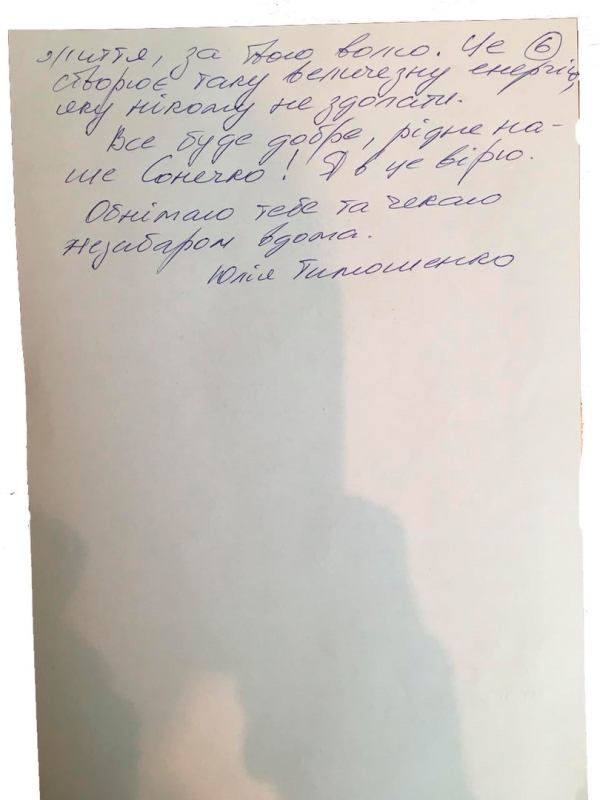 життя, за твою волю. Це 6
створює таку величезну енергію,
яку нікому не здолати.
Все буде добре, рідне на-
ше Сонечко! Я в це вірю.
Обнімаю тебе та чекаю
незабаром вдома.
Юлія Тимошенко